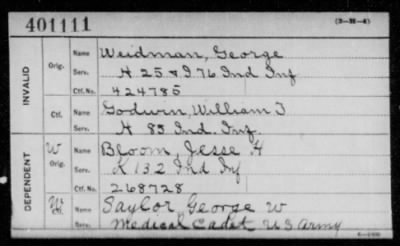 401111 (3-21-4)
INVALID
Orig. Name Weidman, George
Serv. H 25 & I 76 Ind Inf
Ctf. No. 424785
Ctf. Name Godwin, William T
Serv. H 85 Ind. Inf.
DEPENDENT
W Orig. Name Bloom, Jesse H
Serv. K 132 Ind Inf
Ctf. No. 268728
Ctf. Name Saylor George W
Serv. Medical Cadet US Army